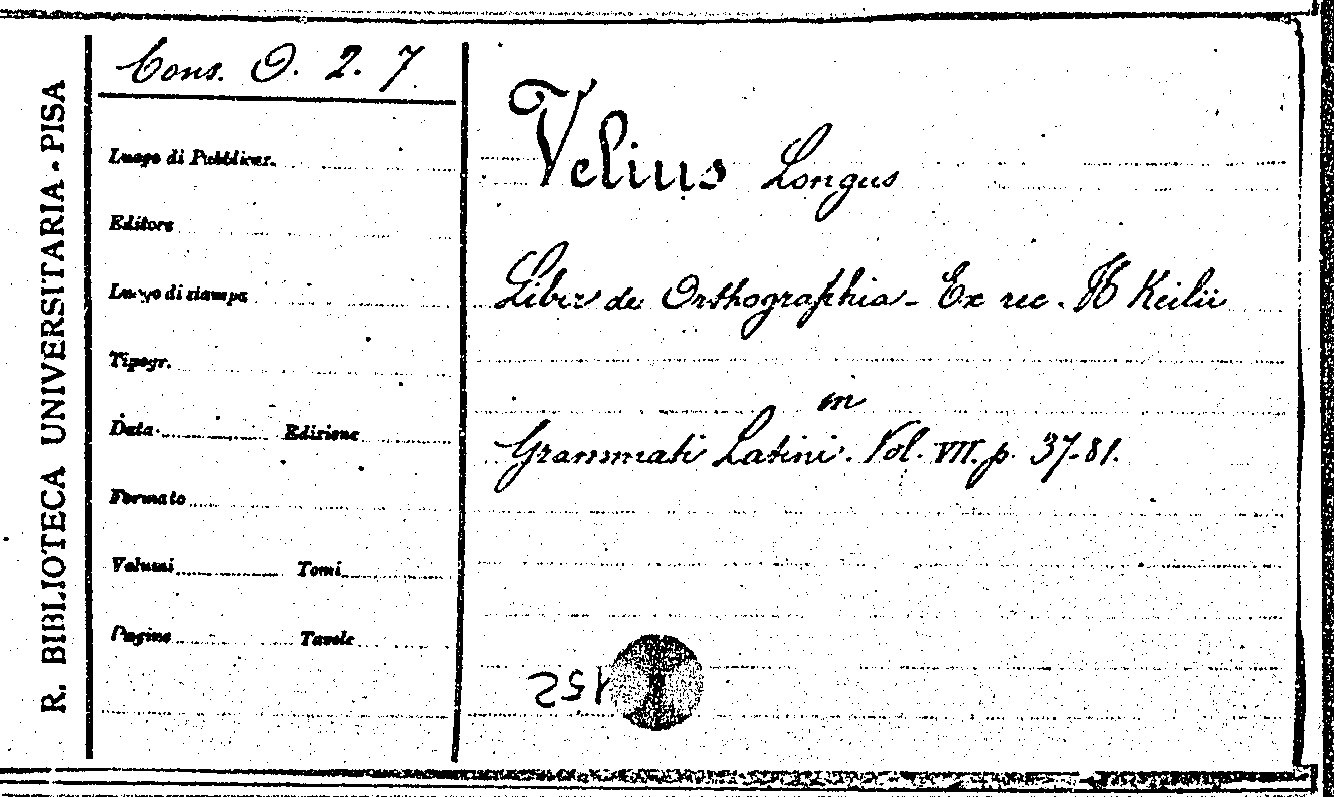 R. BIBLIOTECA UNIVERSITARIA - PISA
Cons. O. 2. 7.
Luogo di Pubblicaz.
Editore
Luogo di stampa
Tipogr.
Data Edizione
Formato
Volumi Tomi
Pagine Tavole
Velius Longus
Liber de Orthographia - Ex rec. H Keilii
in
Grammati Latini. Vol. VII. p. 37-81.
152